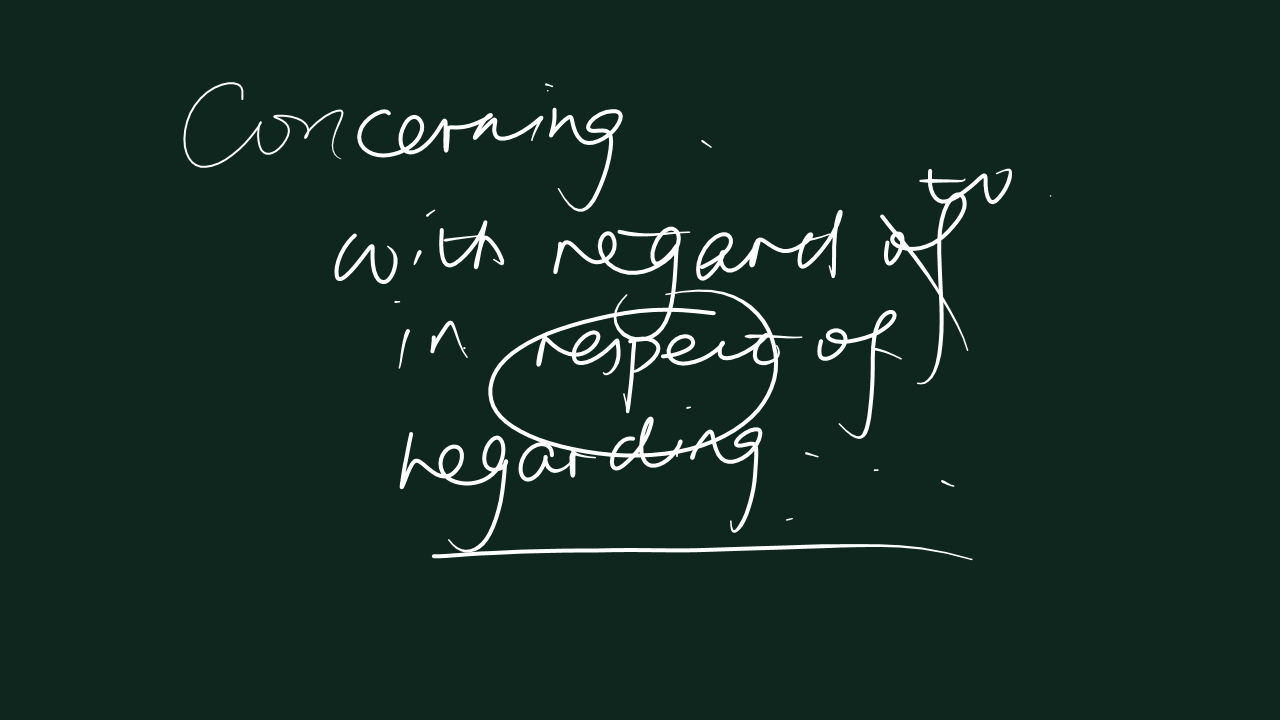 Concerning
with regard of to
in respect of
regarding